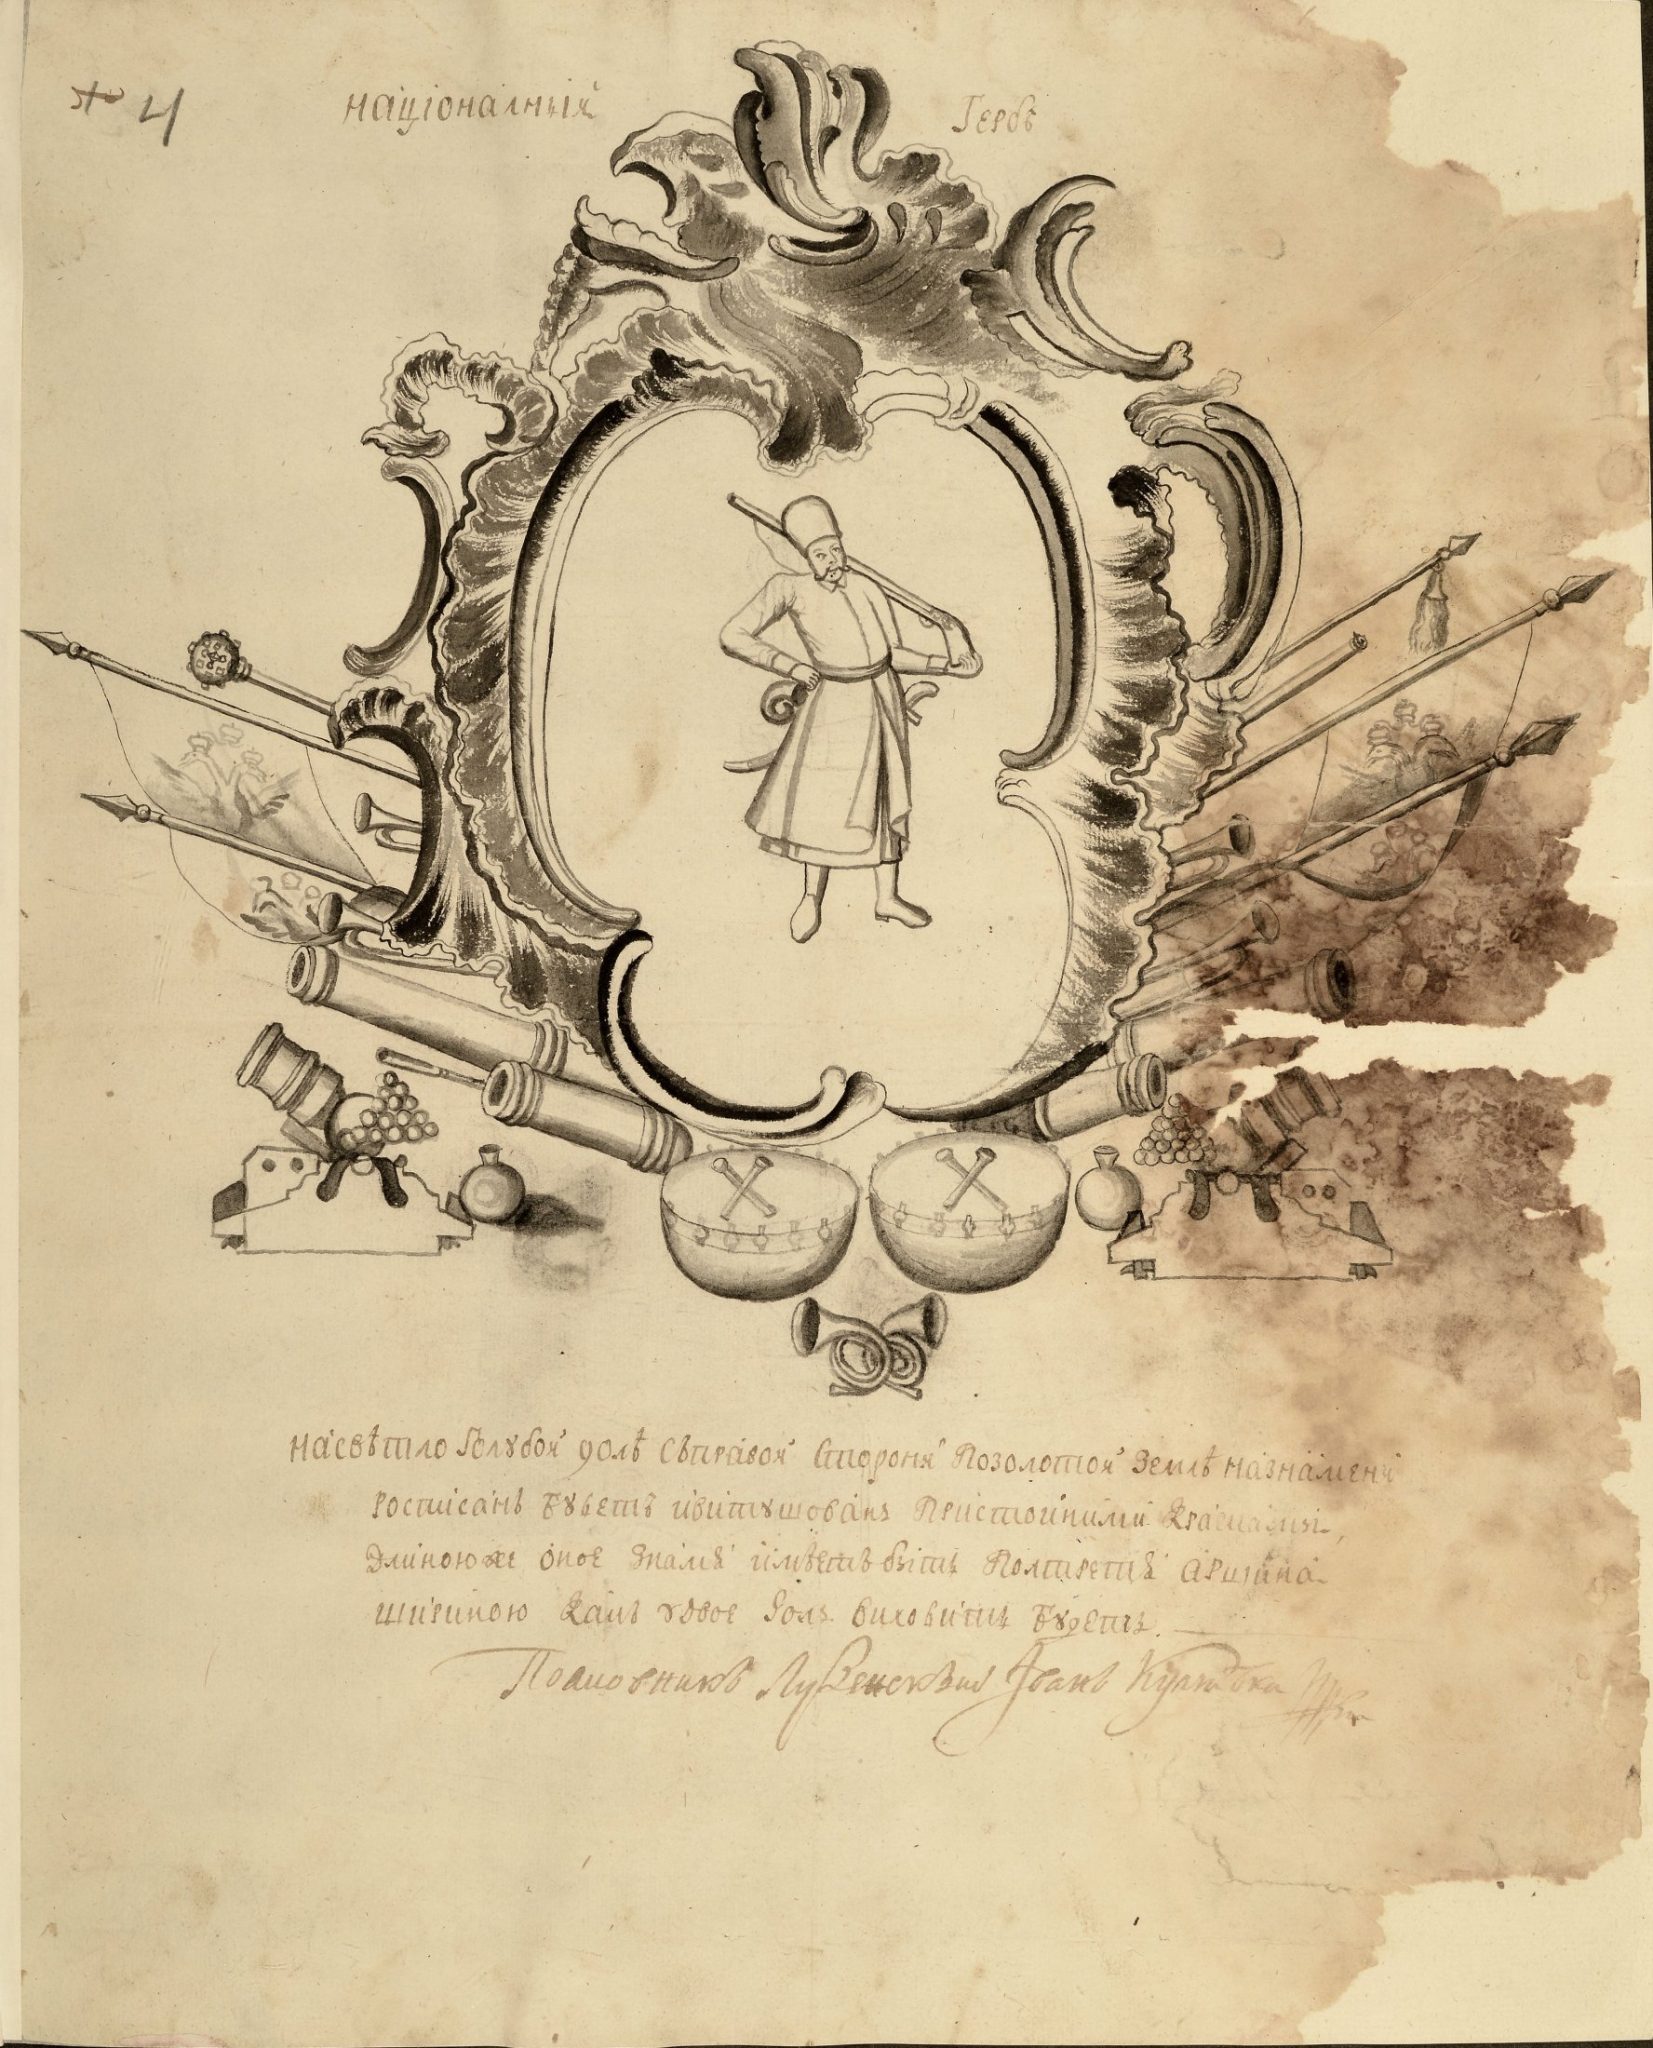 4
Націоналний Гербъ
На свѣтло голубой долѣ съ правой стороны позолотой землѣ на знамени
росписанъ будетъ и витушованъ пристойними красками,
длиною же оное знамя имѣетъ быть полтретя аршина
шириною какъ удвое полъ виховить будетъ.
Полковникъ Лубенскій Іванъ Кулябка